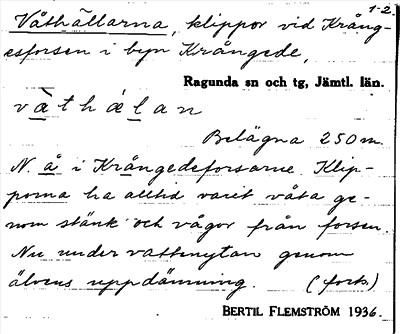 1-2.
Våthällarna, klippor vid Krång-
esforsen i byn Krångede,
Ragunda sn och tg, Jämtl. län.
vàthálan
Belägna 250 m.
N. å i Krångedeforsarne. Klip-
porna ha alltid varit våta ge-
nom stänk och vågor från forsen.
Nu under vattenytan genom
älvens uppdämning. (forts)
BERTIL FLEMSTRÖM 1936.